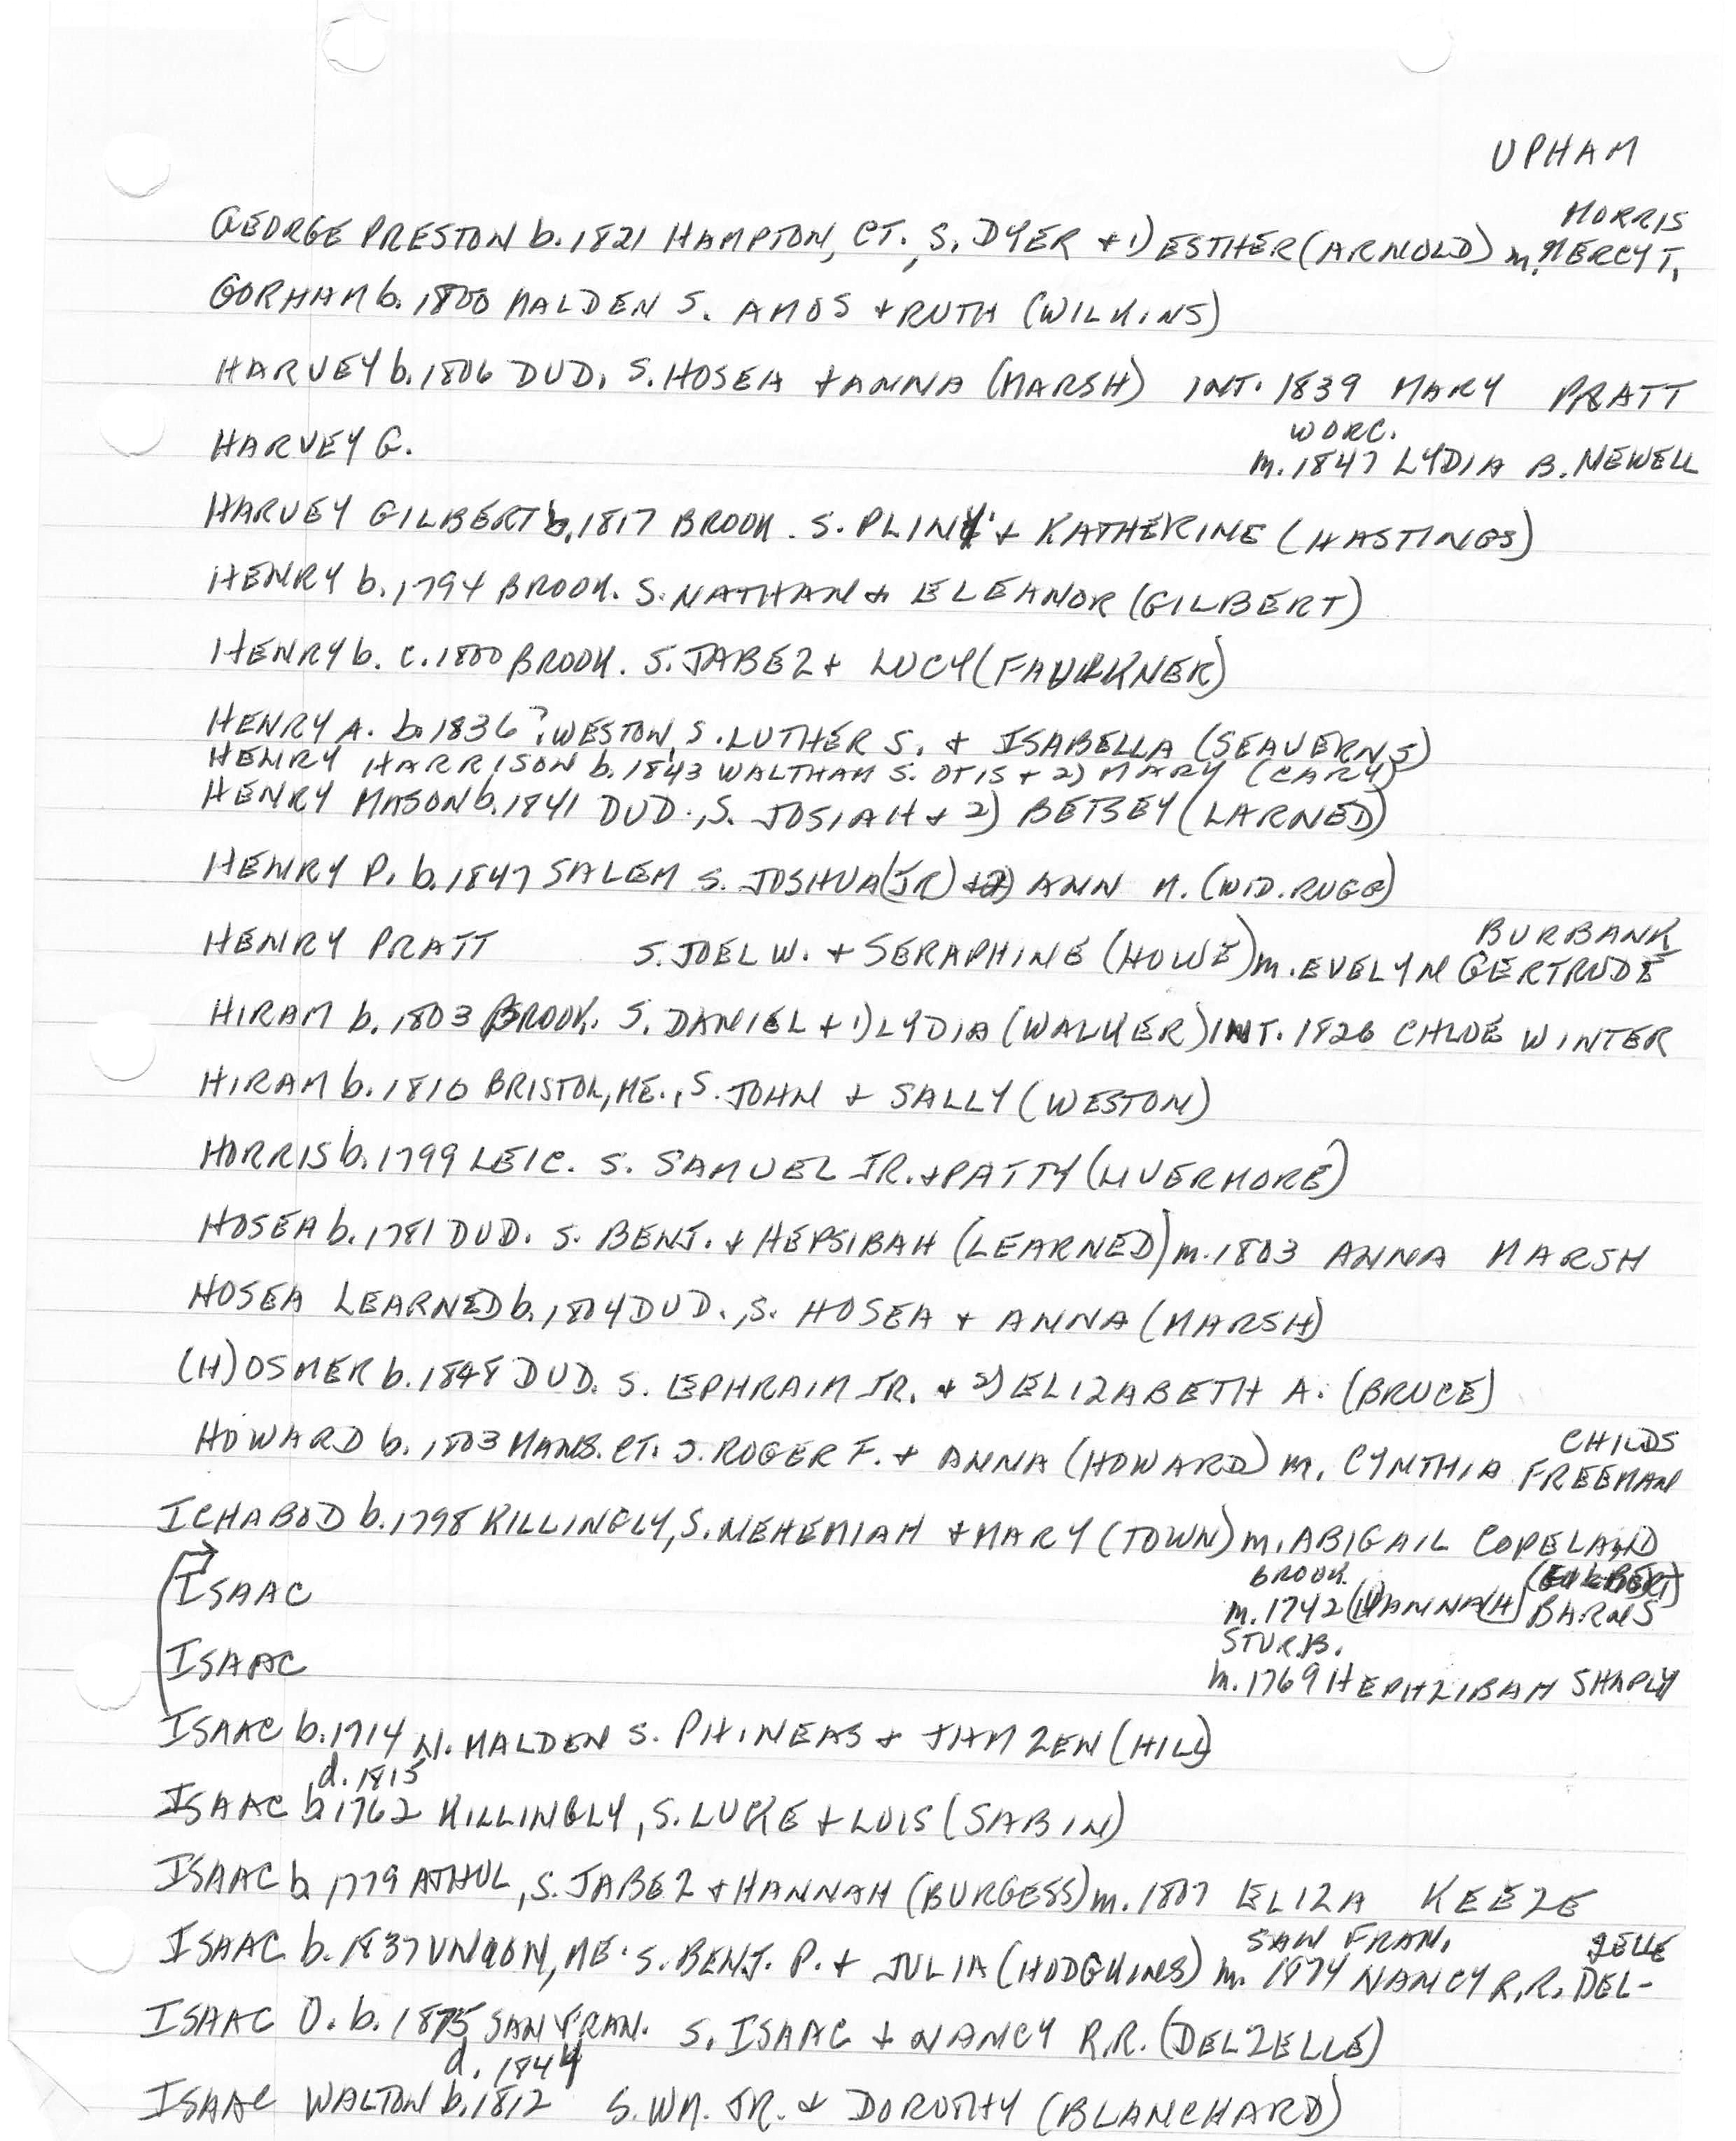 UPHAM
MORRIS
GEORGE PRESTON b. 1821 HAMPTON, CT., S. DYER + 1) ESTHER (ARNOLD) m. MERCY T.
GORHAM b. 1800 MALDEN S. AMOS + RUTH (WILKINS)
HARVEY b. 1806 DUD. S. HOSEA + ANNA (MARSH) INT. 1839 MARY PRATT
WORC.
HARVEY G. m. 1847 LYDIA B. NEWELL
HARVEY GILBERT b. 1817 BROOK. S. PLINY + KATHERINE (HASTINGS)
HENRY b. 1794 BROOK. S. NATHAN + ELEANOR (GILBERT)
HENRY b. c. 1800 BROOK. S. JABEZ + LUCY (FAULKNER)
HENRY A. b. 1836? WESTON, S. LUTHER S. + ISABELLA (SEAVERNS)
HENRY HARRISON b. 1843 WALTHAM S. OTIS + 2) MARY (CARY)
HENRY MASON b. 1841 DUD., S. JOSIAH + 2) BETSEY (LARNED)
HENRY P. b. 1847 SALEM S. JOSHUA (JR) + 2) ANN M. (WID. RUGG)
BURBANK
HENRY PRATT S. JOEL W. + SERAPHINE (HOWE) m. EVELYN GERTRUDE
HIRAM b. 1803 BROOK. S. DANIEL + 1) LYDIA (WALKER) INT. 1826 CHLOE WINTER
HIRAM b. 1810 BRISTOL, ME., S. JOHN + SALLY (WESTON)
HORRIS b. 1799 LEIC. S. SAMUEL JR. + PATTY (LIVERMORE)
HOSEA b. 1781 DUD. S. BENJ. + HEPSIBAH (LEARNED) m. 1803 ANNA MARSH
HOSEA LEARNED b. 1804 DUD., S. HOSEA + ANNA (MARSH)
(H)OSMER b. 1848 DUD. S. EPHRAIM JR. + 2) ELIZABETH A. (BRUCE)
CHILDS
HOWARD b. 1803 MANS. CT. S. ROGER F. + ANNA (HOWARD) m. CYNTHIA FREEMAN
ICHABOD b. 1798 KILLINGLY, S. NEHEMIAH + MARY (TOWN) m. ABIGAIL COPELAND
BROOK.
ISAAC m. 1742 (H)ANNA(H) BARNS
STURB.
ISAAC m. 1769 HEPHZIBAH SHAPLY
ISAAC b. 1714 N. MALDEN S. PHINEAS + TAMZEN (HILL)
d. 1815
ISAAC b. 1762 KILLINGLY, S. LUKE + LOIS (SABIN)
ISAAC b. 1779 ATHOL, S. JABEZ + HANNAH (BURGESS) m. 1807 ELIZA KEEZE
SAN FRAN. ZELLE
ISAAC b. 1837 UNION, ME. S. BENJ. P. + JULIA (HODGKINS) m. 1874 NANCY R.R. DEL-
ISAAC O. b. 1875 SAN FRAN. S. ISAAC + NANCY R.R. (DELZELLE)
d. 1844
ISAAC WALTON b. 1812 S. WM. JR. + DOROTHY (BLANCHARD)